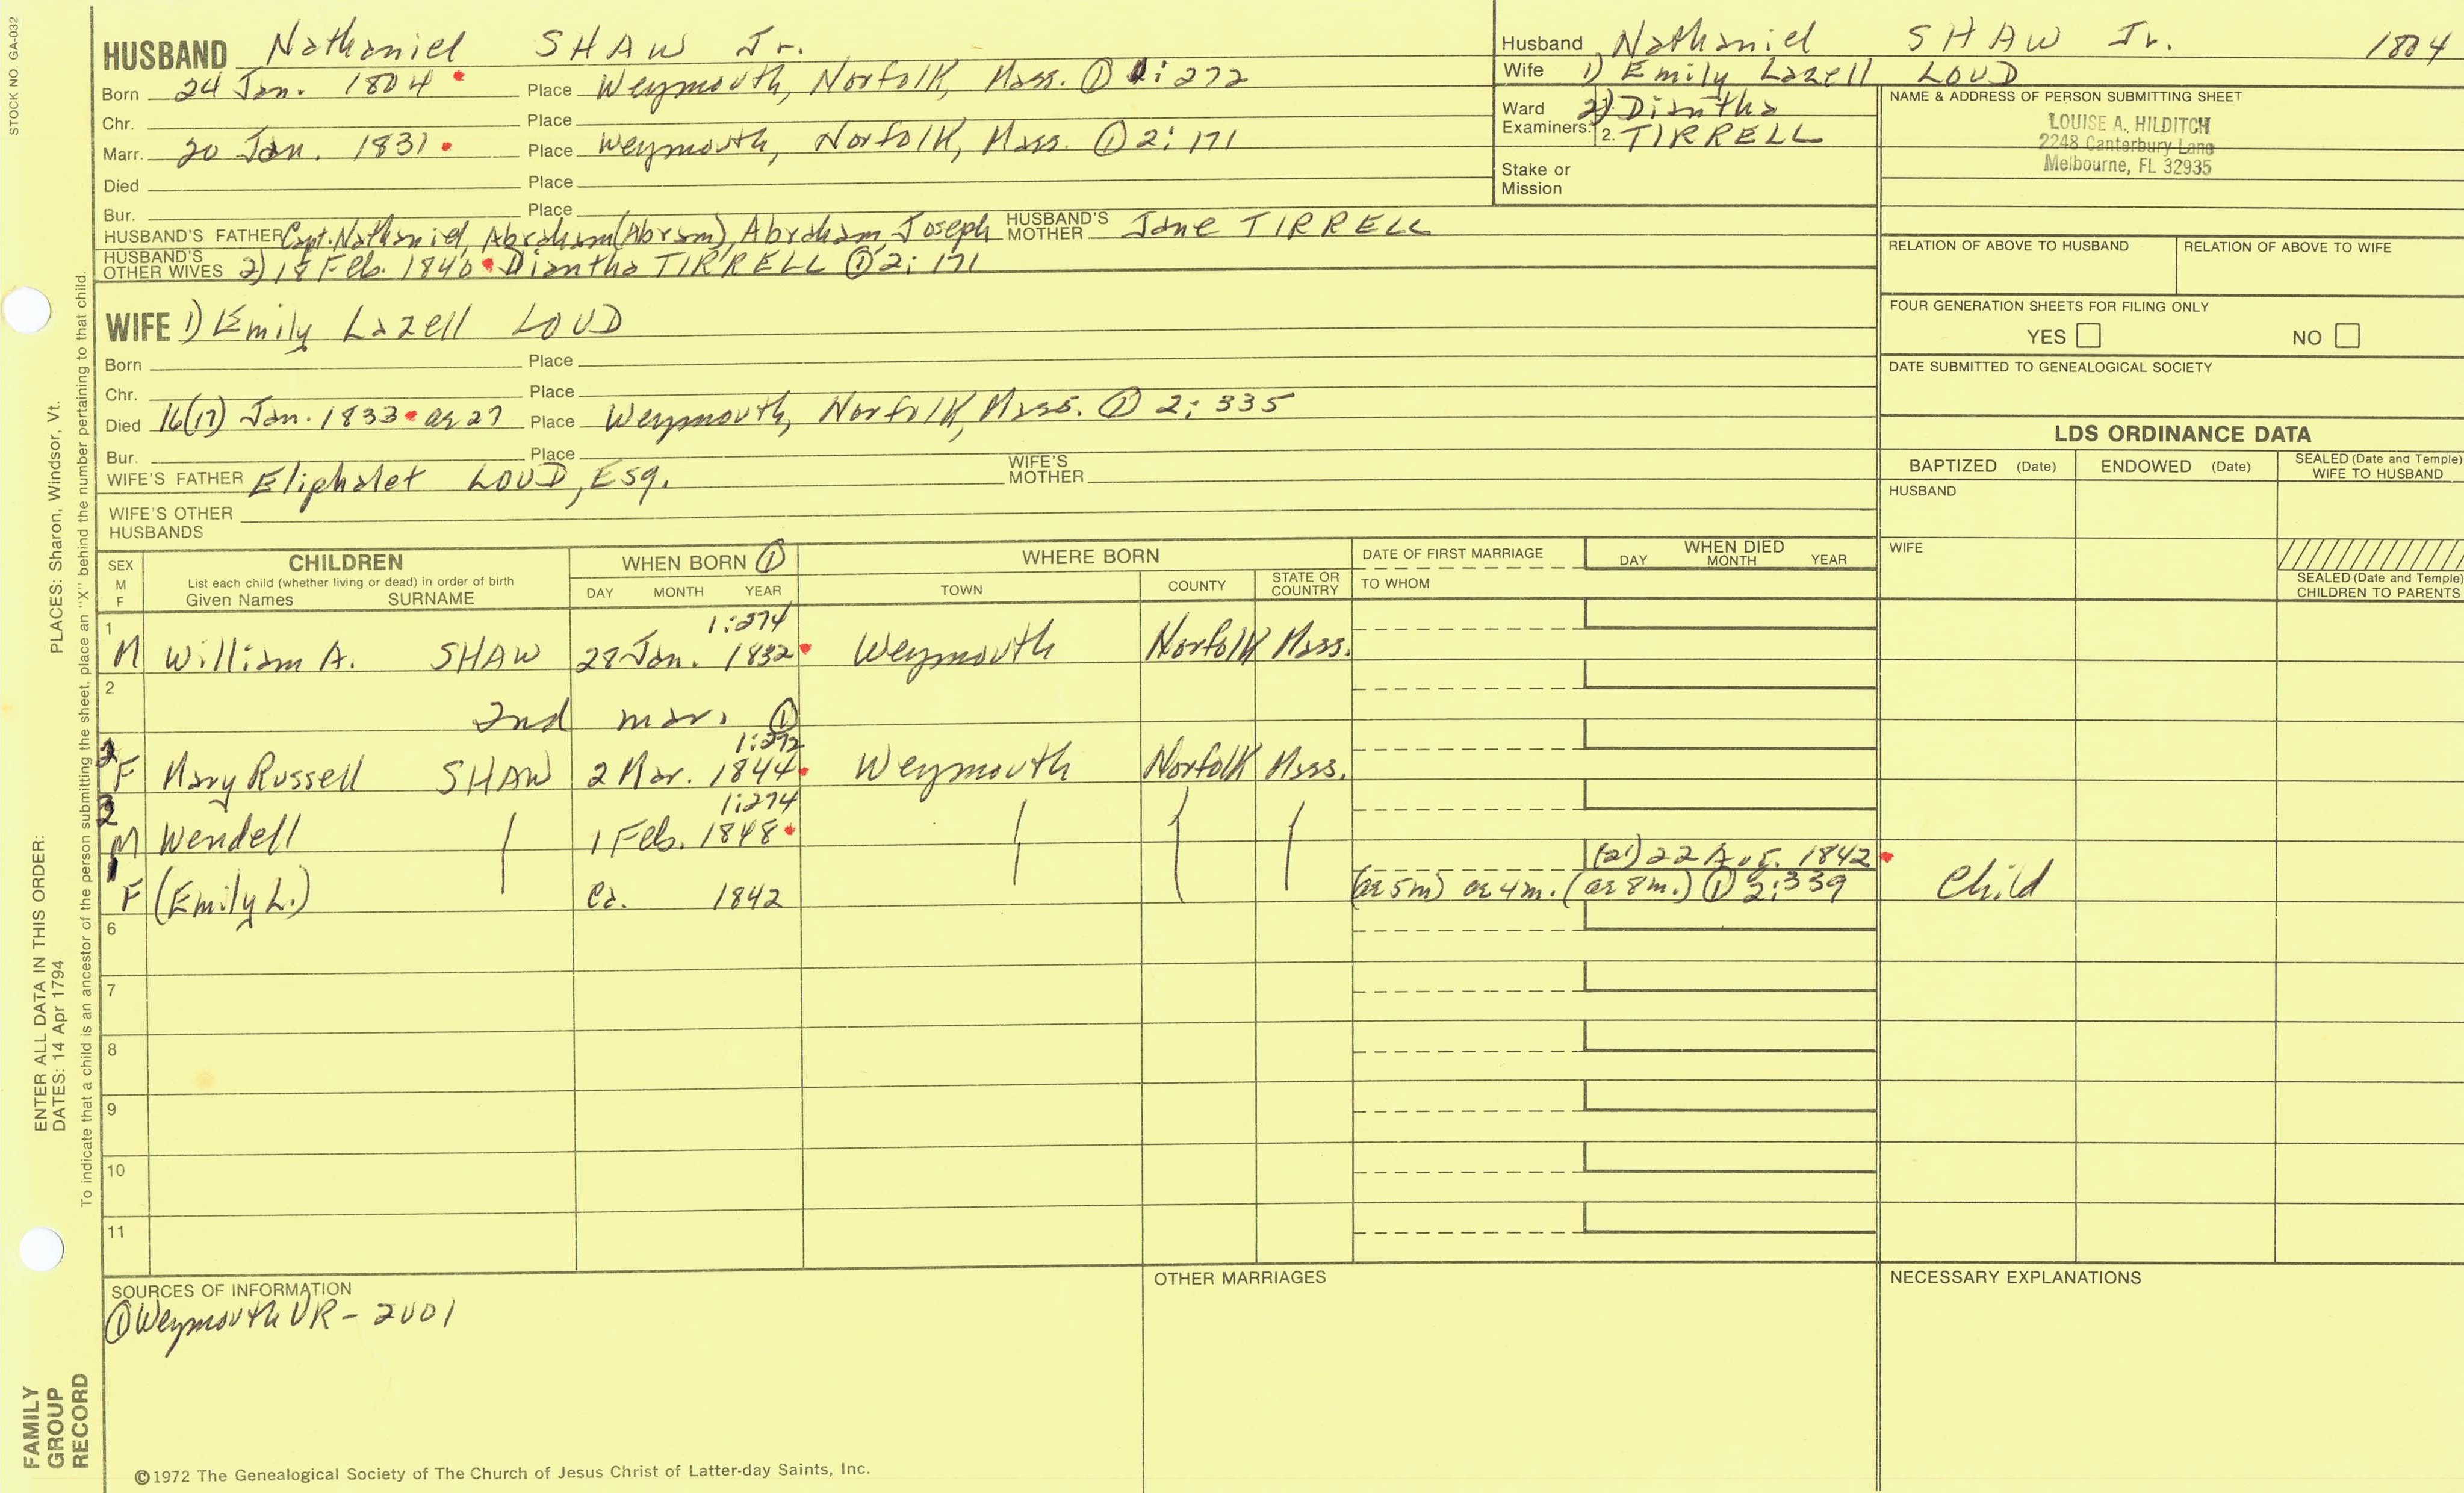 STOCK NO. GA-032
HUSBAND Nathaniel SHAW Jr.
Born 24 Jan. 1804 Place Weymouth, Norfolk, Mass. ① 1:272
Chr. Place
Marr. 20 Jan. 1831 Place Weymouth, Norfolk, Mass. ① 2:171
Died Place
Bur. Place
HUSBAND'S FATHER Capt. Nathaniel, Abraham (Abram), Abraham, Joseph HUSBAND'S MOTHER Jane TIRRELL
HUSBAND'S OTHER WIVES 2) 18 Feb. 1840 Diantha TIRRELL ① 2:171
WIFE 1) Emily Lazell LOUD
Born Place
Chr. Place
Died 16(17) Jan. 1833 ae 27 Place Weymouth, Norfolk, Mass. ① 2:335
Bur. Place
WIFE'S FATHER Eliphalet LOUD, Esq. WIFE'S MOTHER
WIFE'S OTHER HUSBANDS
Husband Nathaniel SHAW Jr. 1804
Wife 1) Emily Lazell LOUD
Ward 2) Diantha
Examiners: 2. TIRRELL
Stake or Mission
NAME & ADDRESS OF PERSON SUBMITTING SHEET
LOUISE A. HILDITCH
2248 Canterbury Lane
Melbourne, FL 32935
RELATION OF ABOVE TO HUSBAND RELATION OF ABOVE TO WIFE
FOUR GENERATION SHEETS FOR FILING ONLY
YES NO
DATE SUBMITTED TO GENEALOGICAL SOCIETY
LDS ORDINANCE DATA
BAPTIZED (Date) ENDOWED (Date) SEALED (Date and Temple) WIFE TO HUSBAND
HUSBAND
WIFE
SEALED (Date and Temple) CHILDREN TO PARENTS
SEX M F CHILDREN WHEN BORN ① WHERE BORN DATE OF FIRST MARRIAGE WHEN DIED
List each child (whether living or dead) in order of birth
Given Names SURNAME DAY MONTH YEAR TOWN COUNTY STATE OR COUNTRY TO WHOM DAY MONTH YEAR
1 1:274
M William A. SHAW 28 Jan. 1832 Weymouth Norfolk Mass.
2
2nd mar. ①
2 1:272
F Mary Russell SHAW 2 Mar. 1844 Weymouth Norfolk Mass.
3 1:274
M Wendell 1 Feb. 1848
1 (21) 22 Aug. 1842
F (Emily L.) Ca. 1842 (ae 5m) ae 4m. (ae 8m.) ① 2:339 Child
6
7
8
9
10
11
SOURCES OF INFORMATION OTHER MARRIAGES NECESSARY EXPLANATIONS
① Weymouth VR - 2001
©1972 The Genealogical Society of The Church of Jesus Christ of Latter-day Saints, Inc.
FAMILY GROUP RECORD
ENTER ALL DATA IN THIS ORDER:
DATES: 14 Apr 1794 PLACES: Sharon, Windsor, Vt.
To indicate that a child is an ancestor of the person submitting the sheet, place an "X" behind the number pertaining to that child.